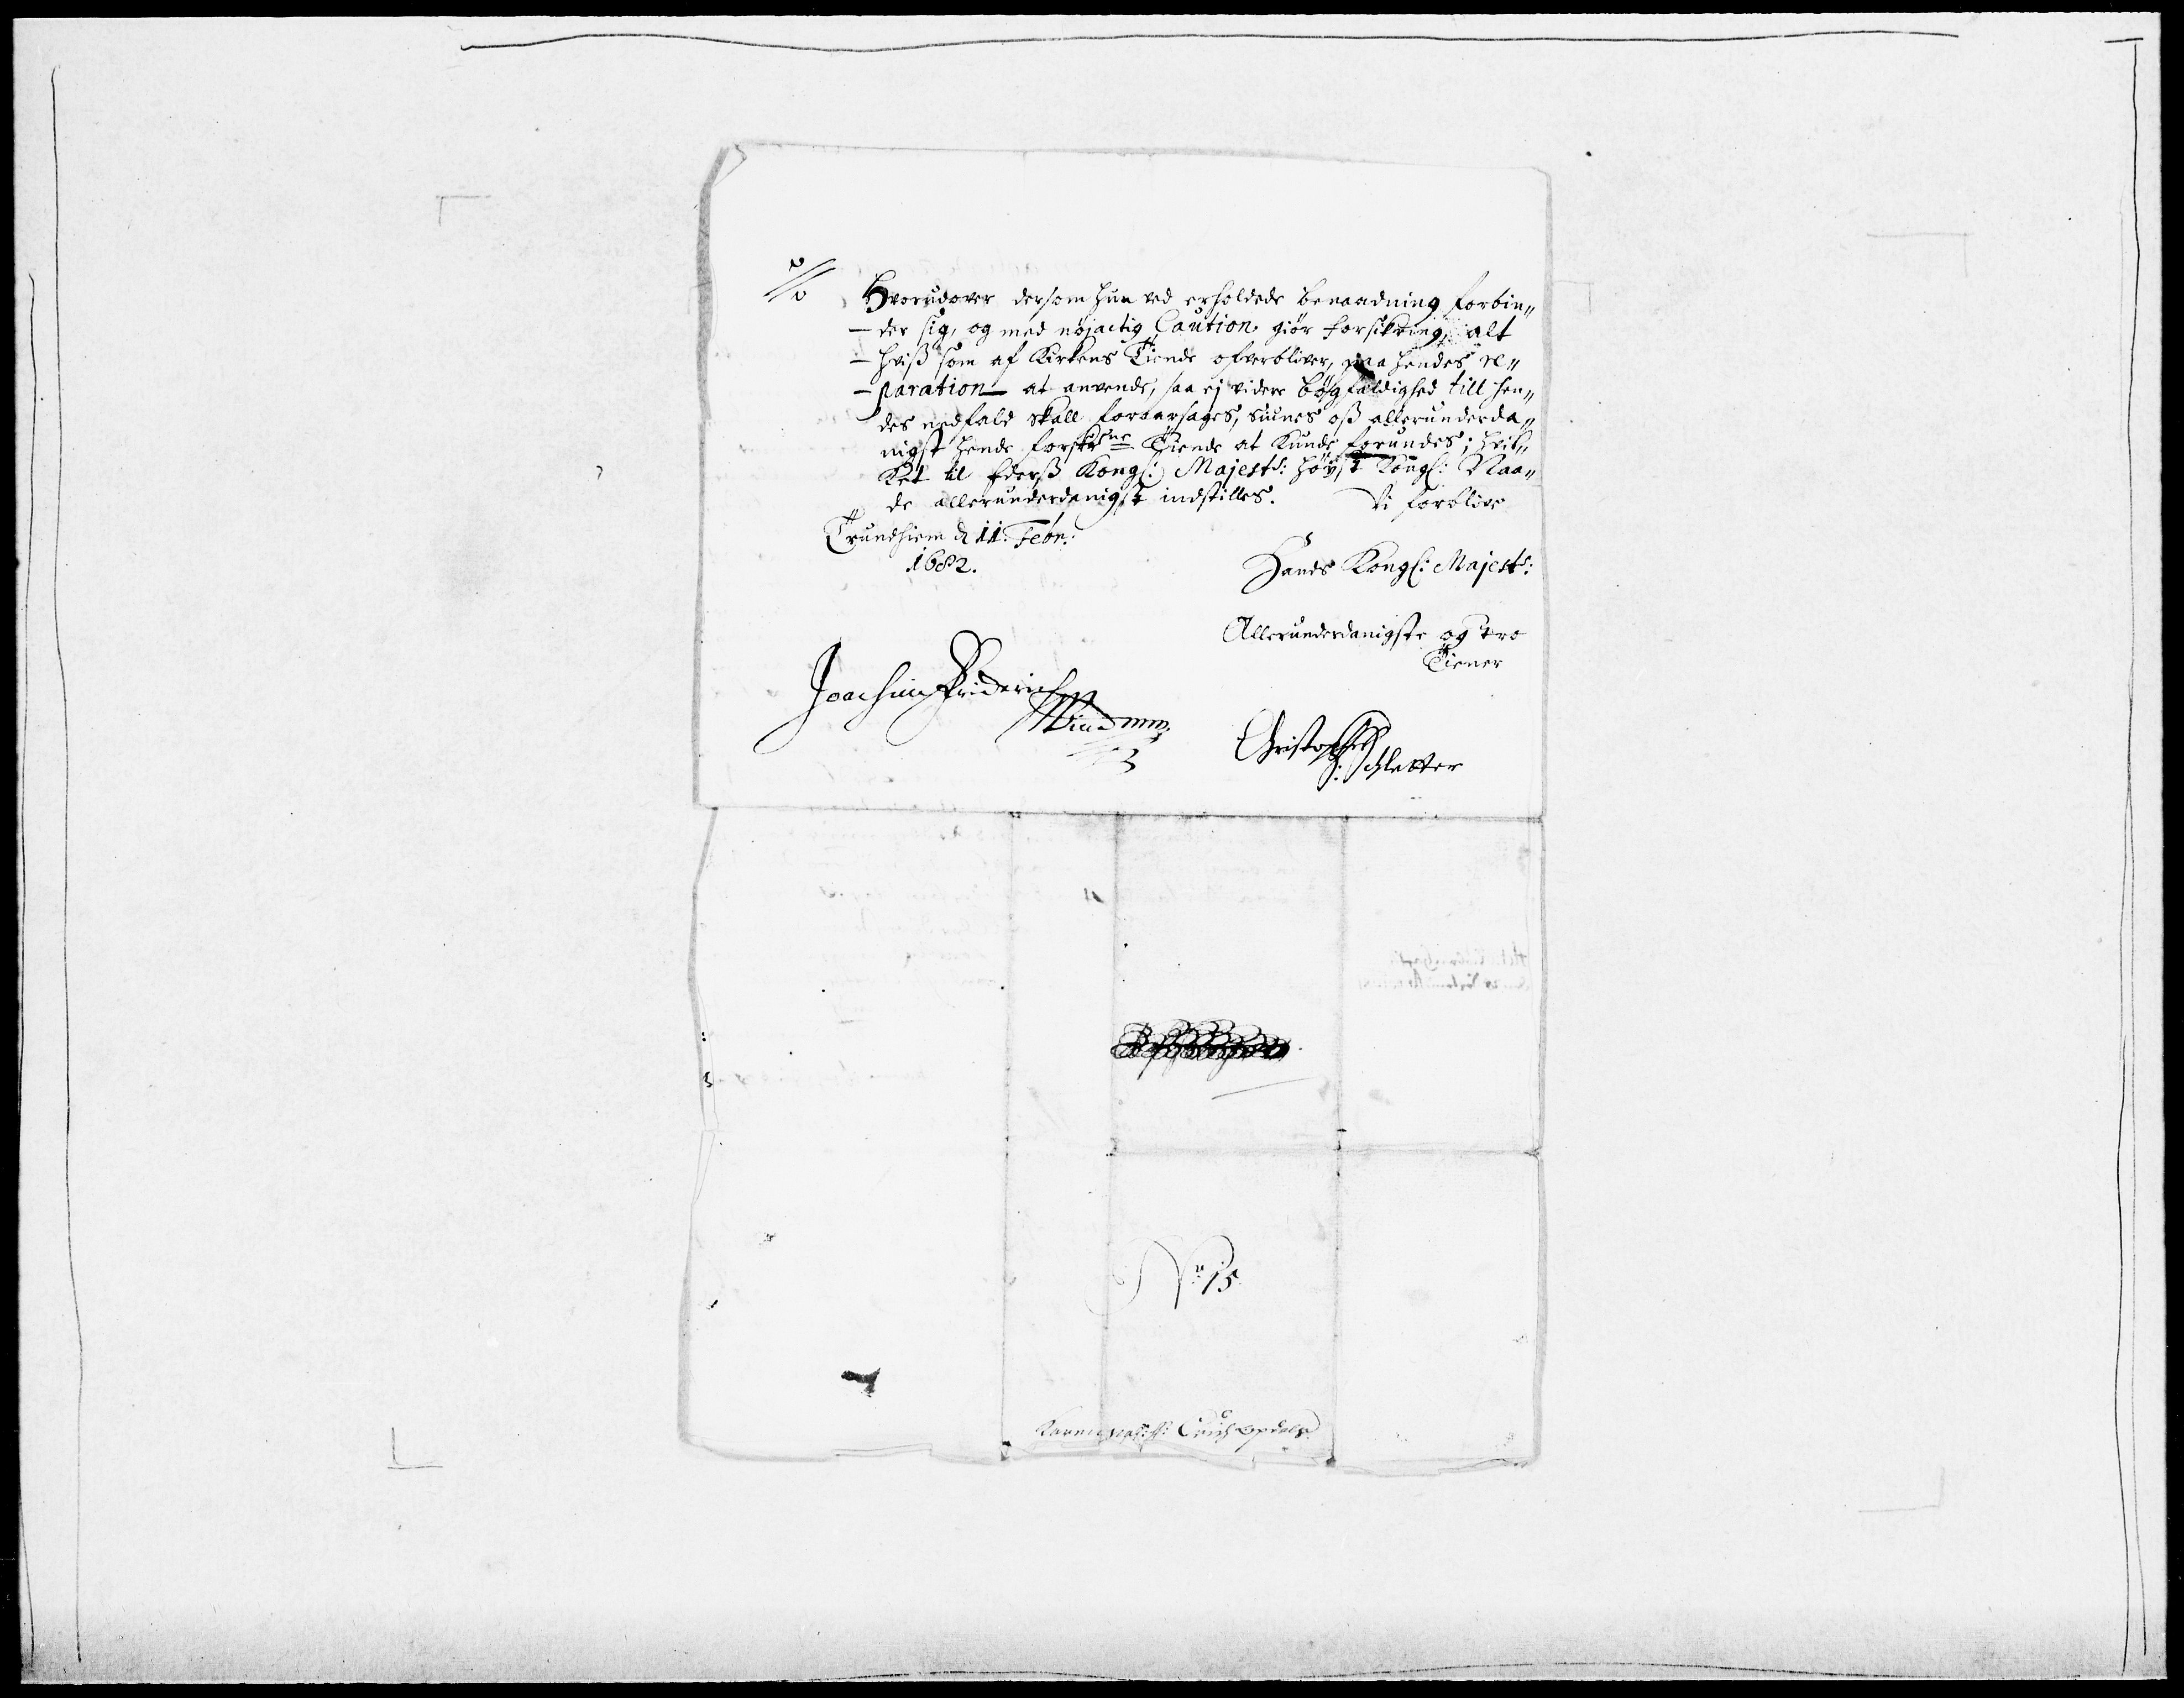 Hvorudover dersom hun ved erholdede benaadning forbin„
der sig, og med nøjactig Caution giør forsikring, alt
hviß som af Kirkens Tiende ofverbliver, paa hendes re„
paration at anvende, saa ej videre bøgfaldighed till hen„
des nedfald skall foraarsages, siunes oß allerunderda„
nigst hende forskrefne Tiende at kunde forundes; hvil„
ket til Ederß Kongl: Majestt: høyst Kongl: Naa„
de allerunderdanigst indstilles. Vi forblive
Trundhiem d 11. Febr:
1682.
Hands Kongl: Majestt:
Allerunderdanigste og tro
Tiener
Joachim Friderich
Vind mpp
Christopher
Schletter
No 15